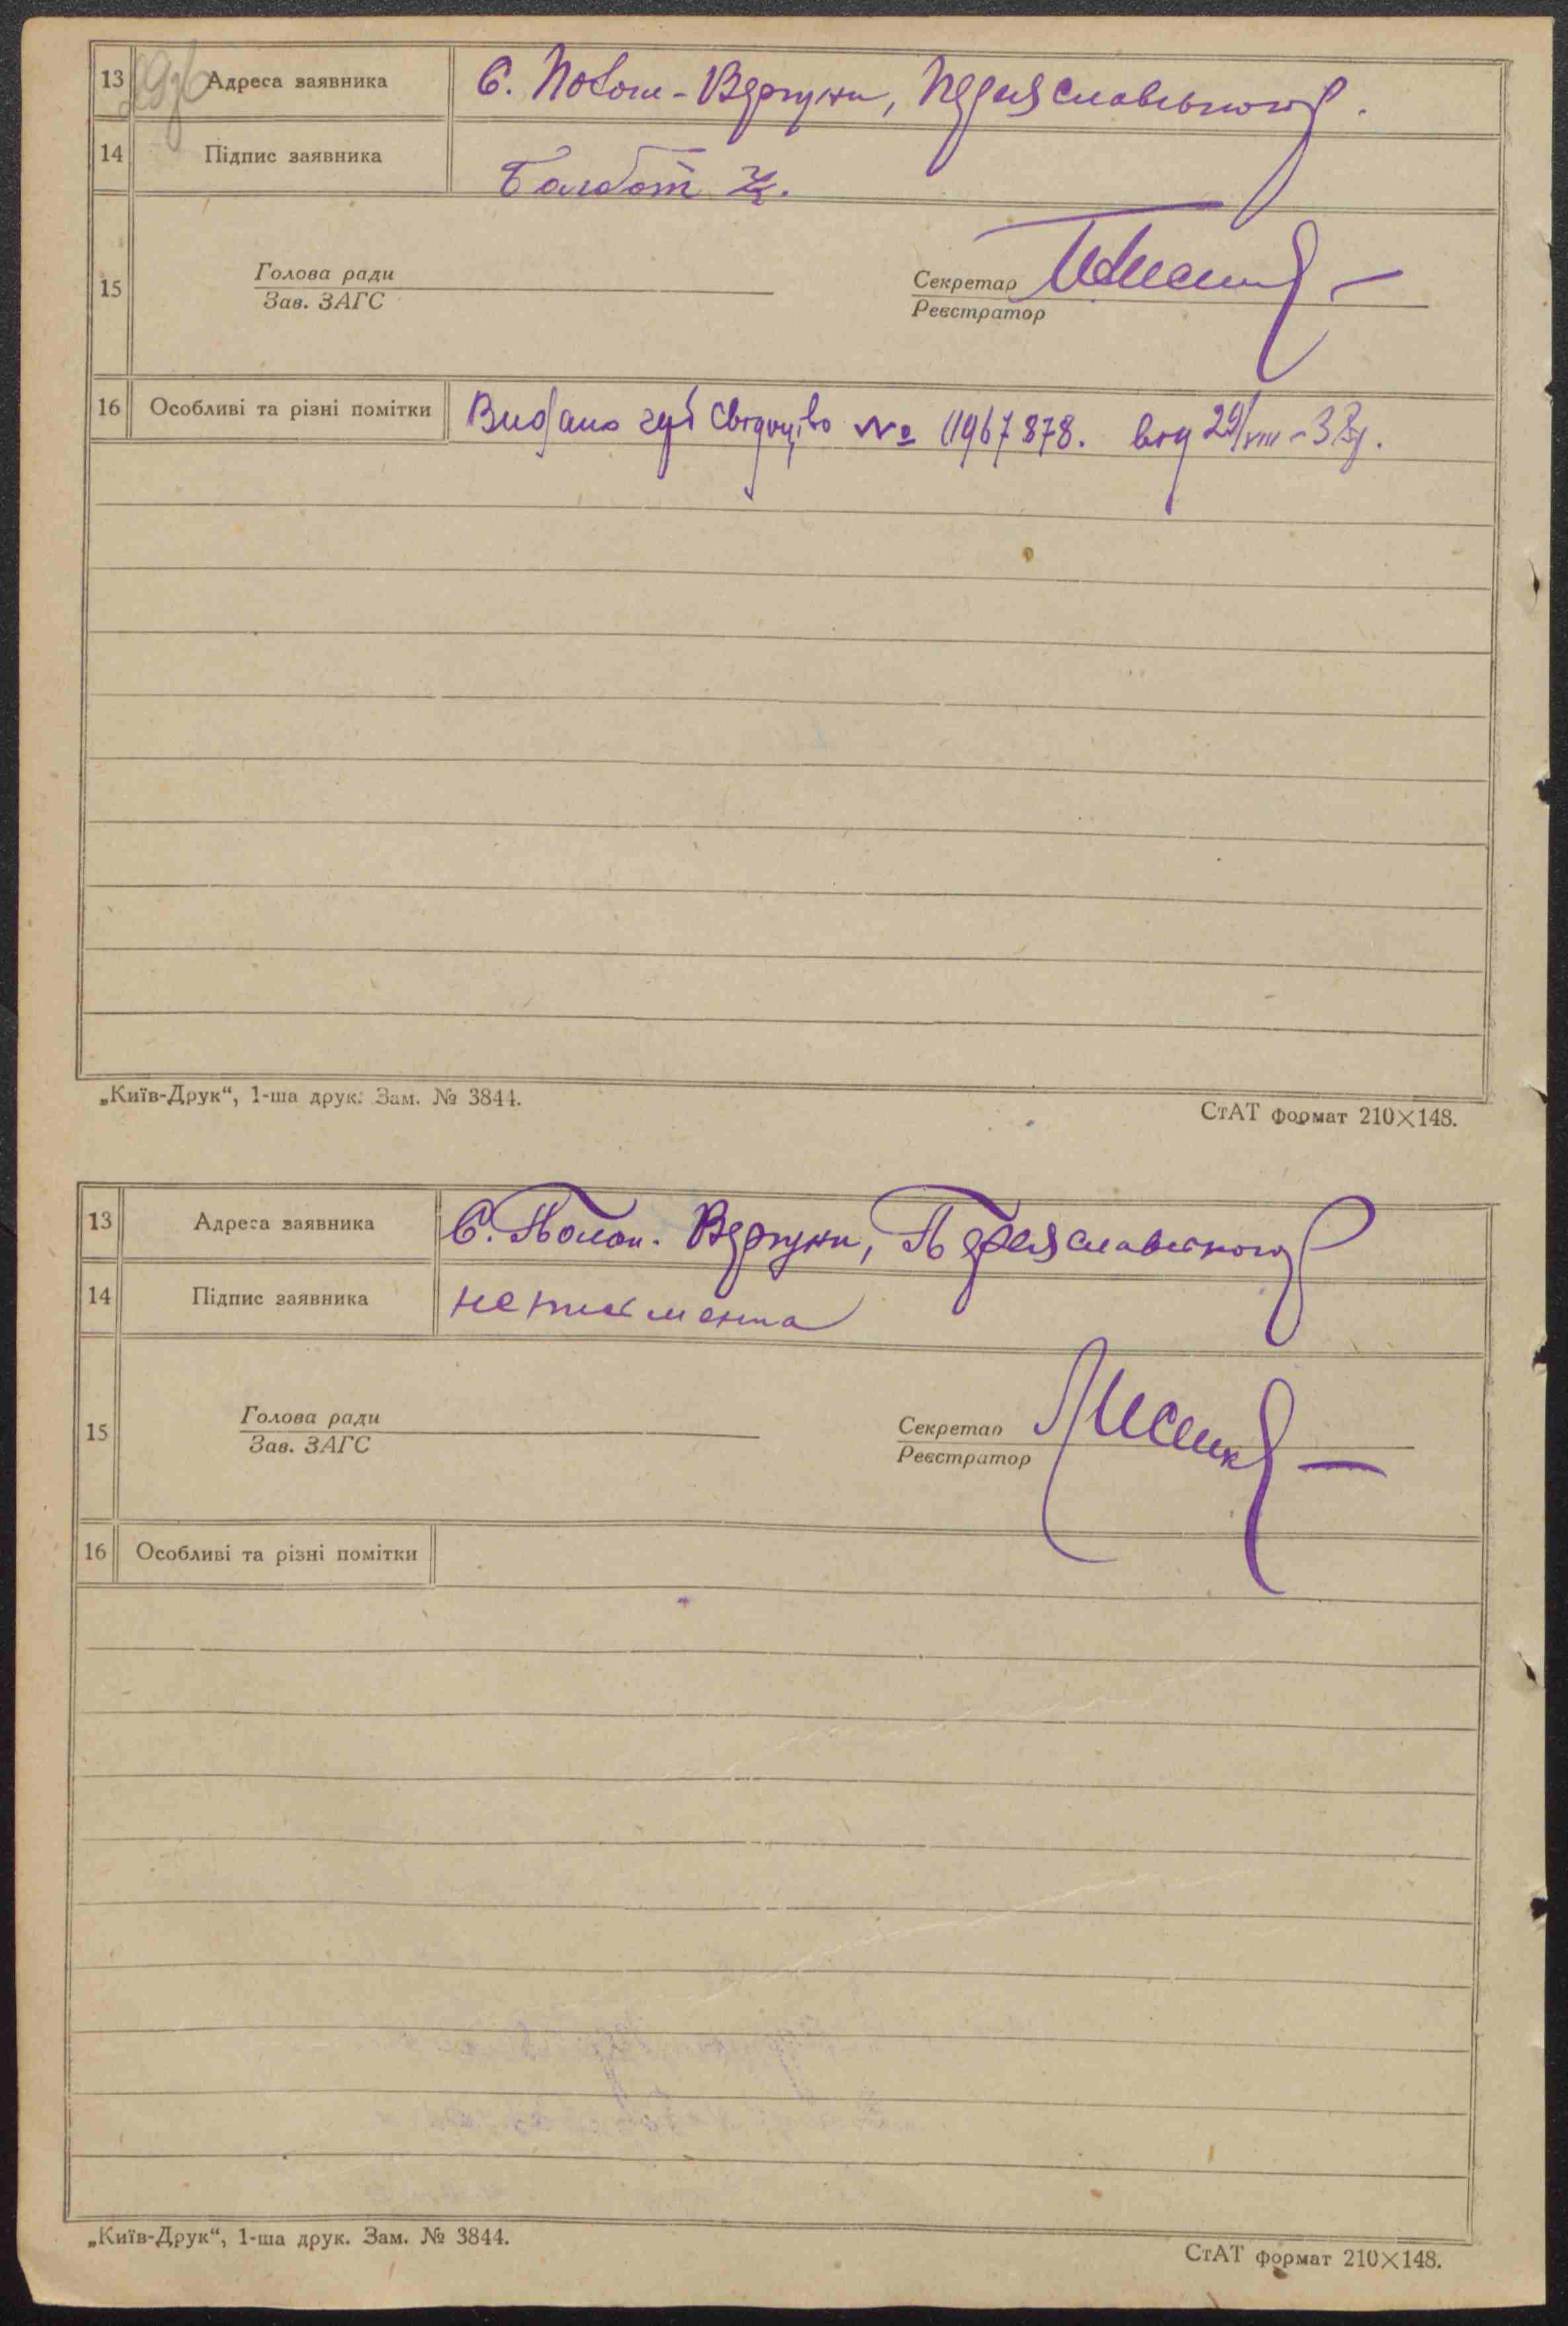 13 Адреса заявника С. Полом-Вергуни, Переяславського р.
14 Підпис заявника
15 Голова ради Секретар
Зав. ЗАГС Реєстратор
16 Особливі та різні помітки Видано свідоцтво № 0967878. від 29/VIII-
„Київ-Друк“, 1-ша друк. Зам. № 3844.
СтАТ формат 210×148.
13 Адреса заявника С. Полом. Вергуни, Переяславського р
14 Підпис заявника неписменна
15 Голова ради Секретар
Зав. ЗАГС Реєстратор
16 Особливі та різні помітки
„Київ-Друк“, 1-ша друк. Зам. № 3844.
СтАТ формат 210×148.